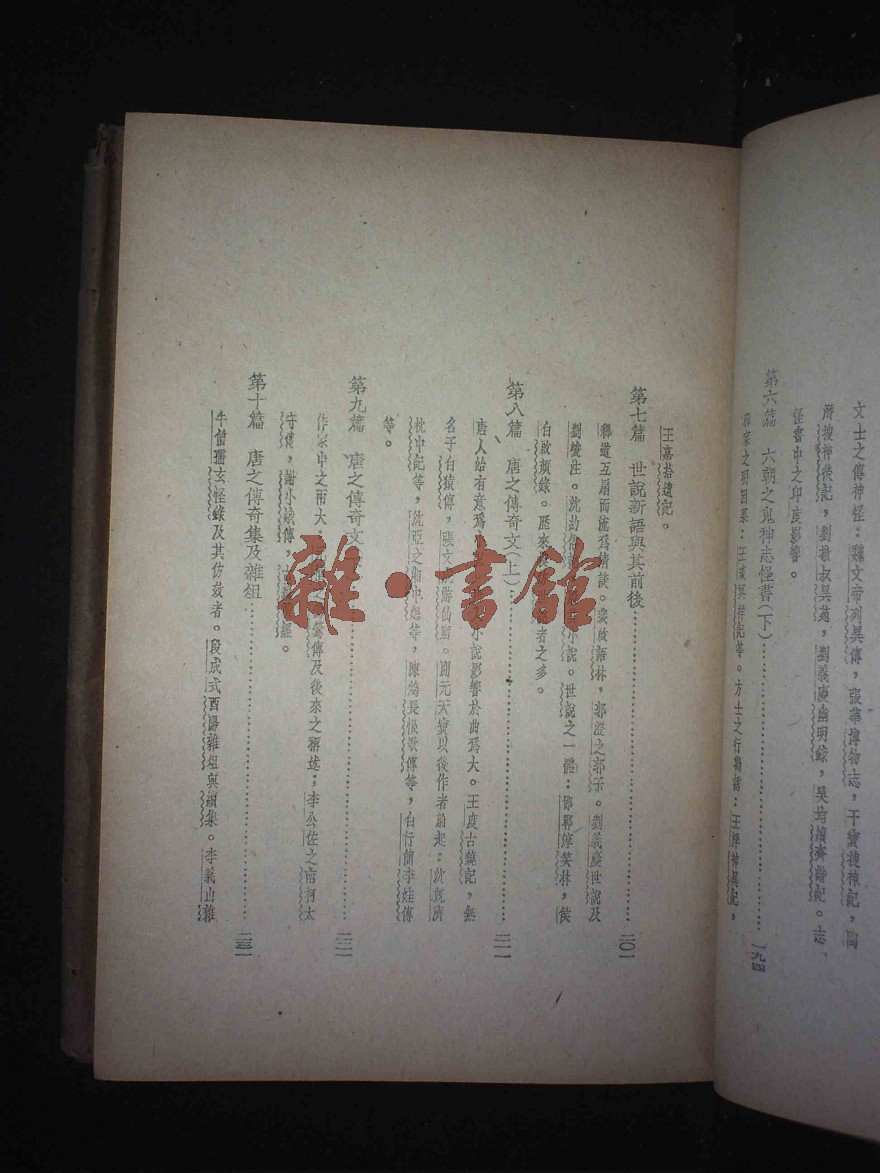 文士之傳神怪：魏文帝列異傳，張華博物志，干寶搜神記，陶
潛搜神後記，劉敬叔異苑，劉義慶幽明錄，吳均續齊諧記。志
怪書中之印度影響。
第六篇 六朝之鬼神志怪書(下)……一九四
釋家之明因果：王琰冥祥記等。方士之行勸誘：王浮神異記，
王嘉拾遺記。
第七篇 世說新語與其前後……二〇一
釋道互扇而流爲清談。裴啟語林，郭澄之郭子。劉義慶世說及
劉峻注。沈約俗說，小說。世說之一體：邯鄲淳笑林，侯
白啟顏錄。歷來者之多。
第八篇 唐之傳奇文(上)……二一一
唐人始有意爲小說影響於曲爲大。王度古鏡記，無
名子白猿傳，張文游仙窟。開元天寶以後作者蔚起：沈既濟
枕中記等，沈亞之湘中怨等，陳鴻長恨歌傳等，白行簡李娃傳
等。
第九篇 唐之傳奇文……二二一
作家中之兩大：鶯傳及後來之稱述；李公佐之南柯太
守傳，謝小娥傳，古經。
第十篇 唐之傳奇集及雜俎……二三一
牛僧孺玄怪錄及其仿效者。段成式酉陽雜俎與續集。李義山雜
雜·書館